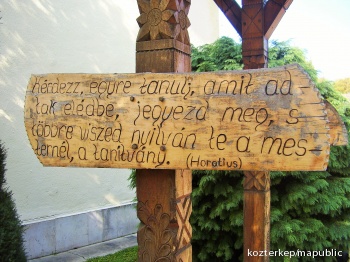 Kérdezz, egyre tanulj, amit ad-
tak elédbe, jegyezd meg, s
többre viszed nyilván te a mes-
ternél, a tanítvány. (Horatius)
kozterkep/mapublic